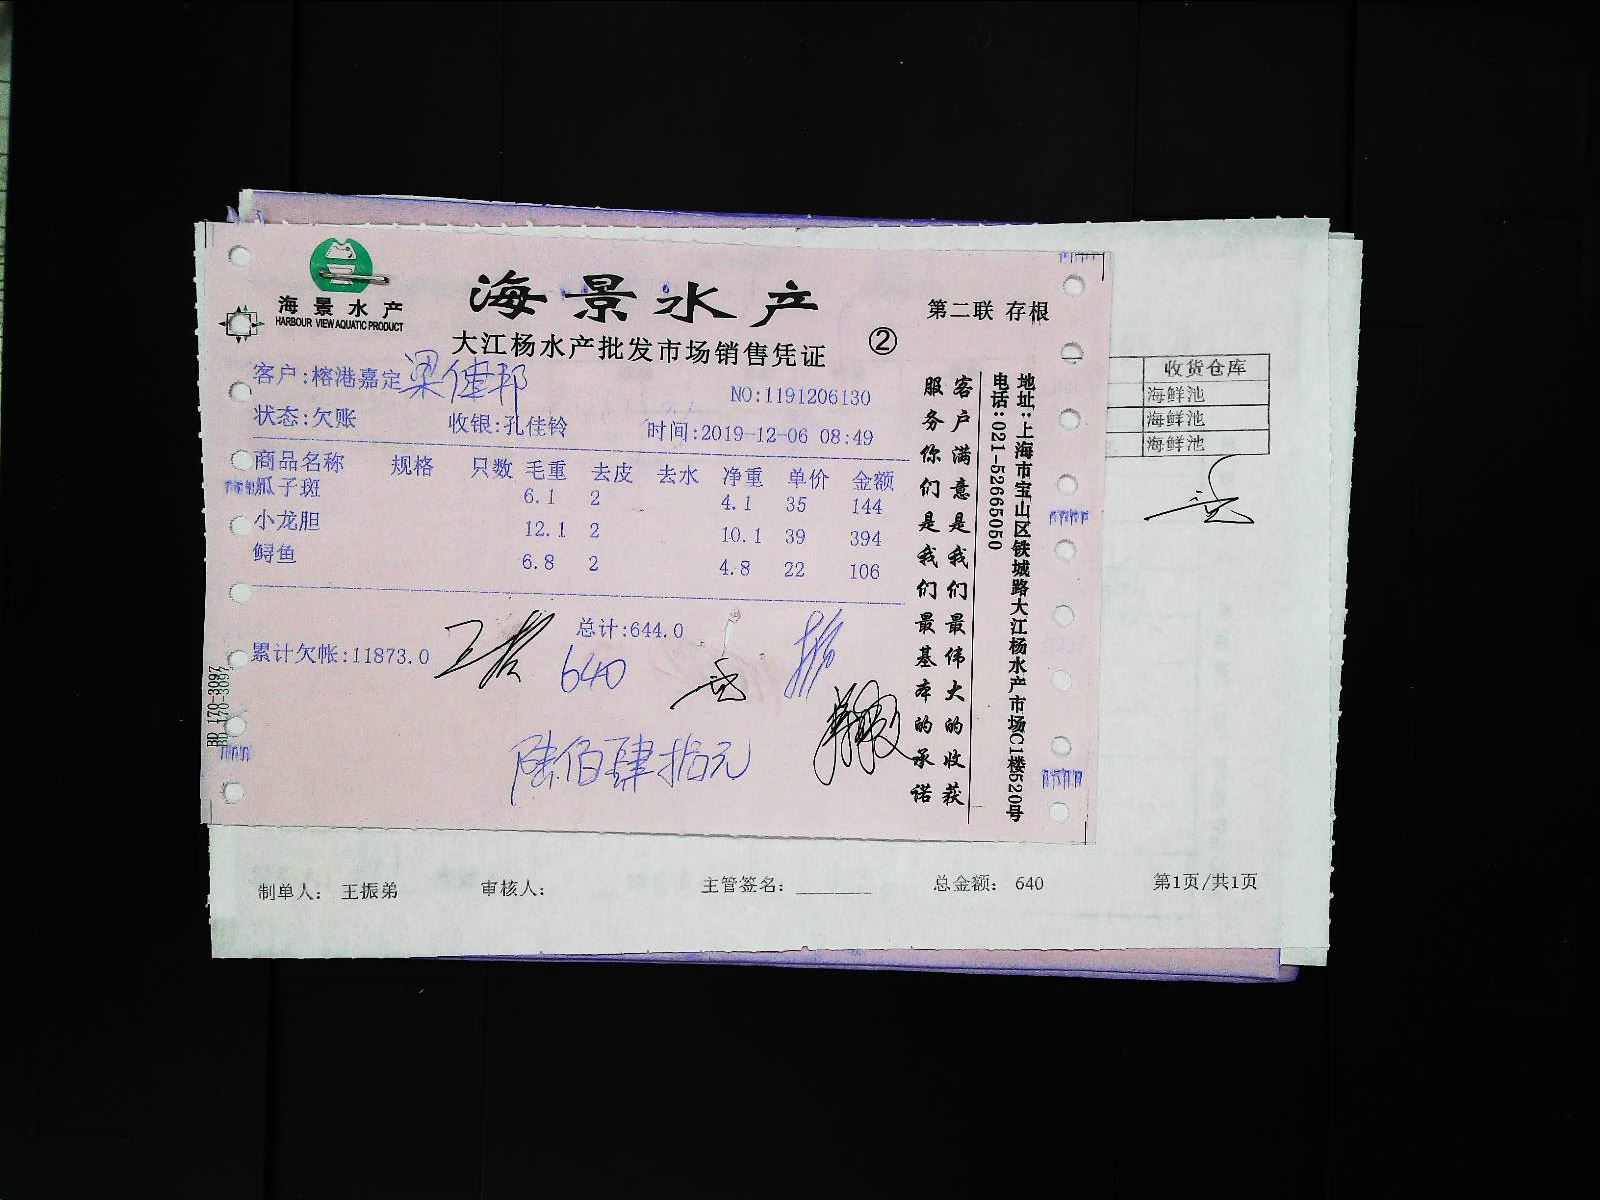 海景水产
HARBOUR VIEW AQUATIC PRODUCT
海景水产
大江杨水产批发市场销售凭证
②
第二联 存根
客户:榕港嘉定 梁健邦
NO:1191206130
状态:欠账 收银:孔佳铃 时间:2019-12-06 08:49
商品名称 规格 只数 毛重 去皮 去水 净重 单价 金额
瓜子斑 6.1 2 4.1 35 144
小龙胆 12.1 2 10.1 39 394
鲟鱼 6.8 2 4.8 22 106
总计:644.0
累计欠帐:11873.0
640
陆佰肆拾元
客户满意是我们最伟大的收获
服务你们是我们最基本的承诺
地址:上海市宝山区铁城路大江杨水产市场C1楼520号
电话:021-52665050
BD 170-3097
BD 170-3097
收货仓库
海鲜池
海鲜池
海鲜池
制单人: 王振弟 审核人: 主管签名: 总金额: 640 第1页/共1页